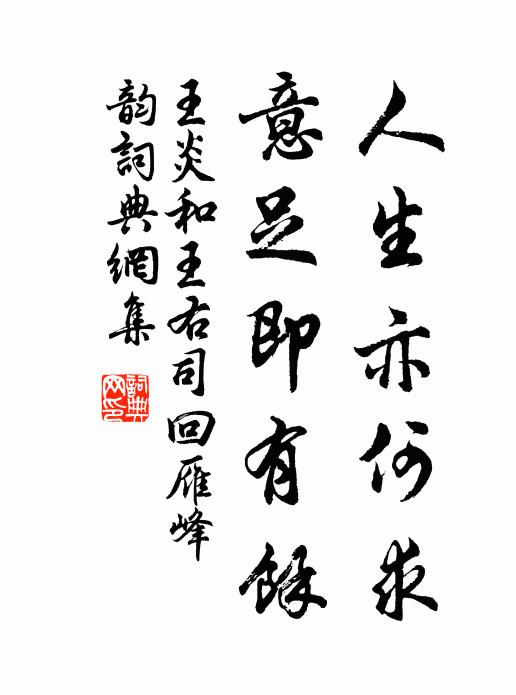 人生亦何求
意足即有餘
王炎和王右司回雁峰
韵詞典網集
詞典
网印